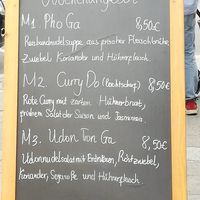 Wochenangebot
M1. Pho Ga 8,50€
Reisbandnudelsuppe aus frischer Fleischbrühe,
Zwiebel Koriander und Hühnerfleisch.
M2. Curry Do (Rotscharf) 8,50€
Rote Curry mit zarten Hühnerbrust,
frischem Salat der Saison und Jasminreis.
M3. Udon Tron Ga 8,50€
Udonnudelsalat mit Erdnüssen, Röstzwiebel,
Koriander, Sojasoße und Hühnerfleisch.